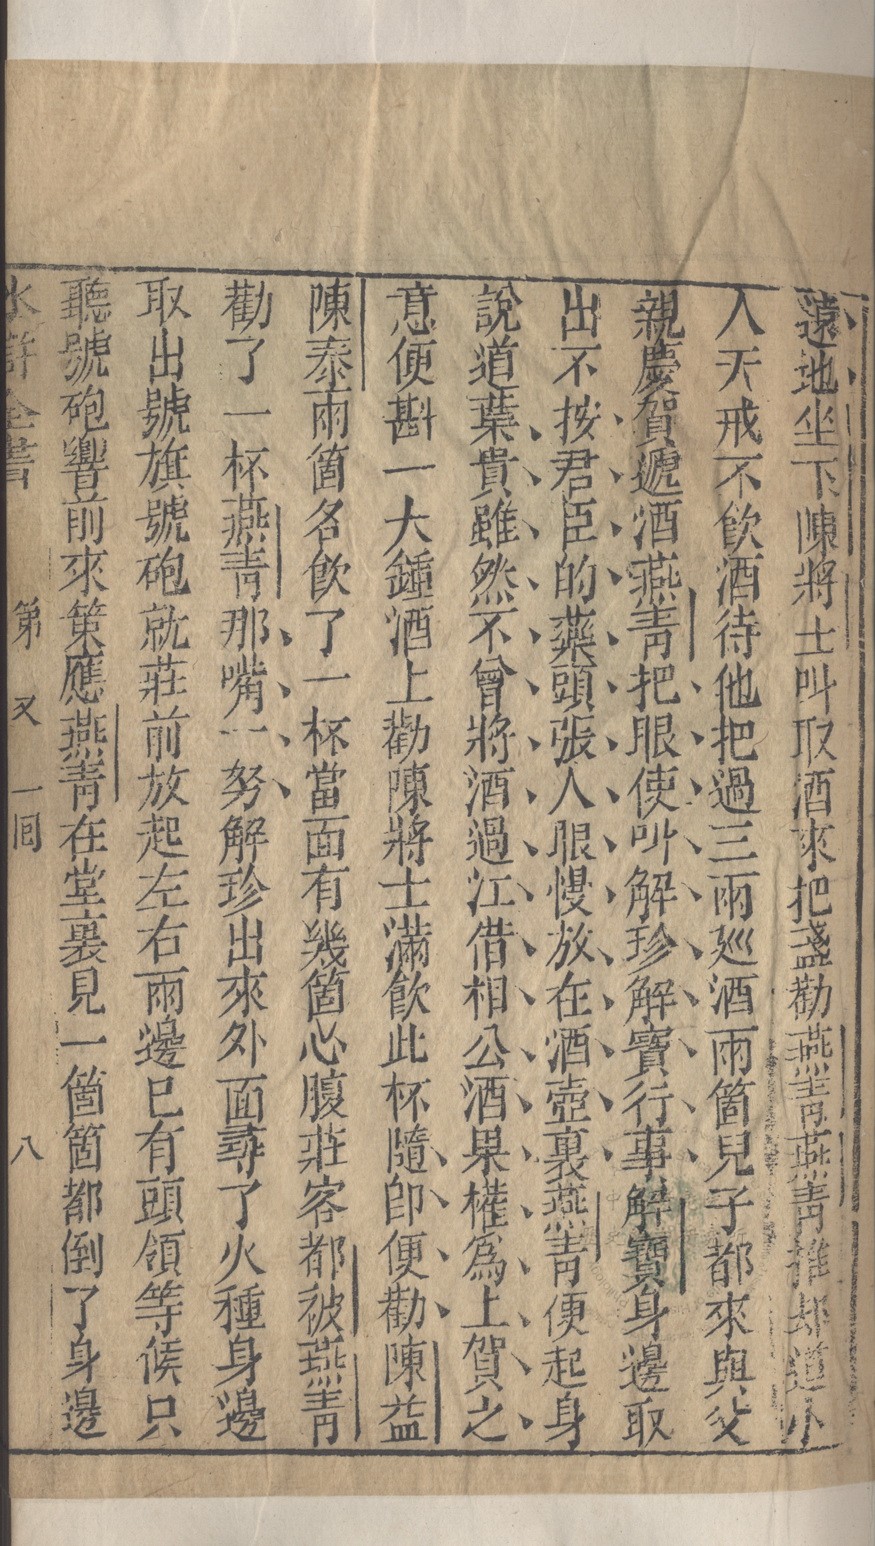 遠地坐下陳將士叫取酒來把盞勸燕青燕青推却道小
人天戒不飲酒待他把過三兩廵酒兩箇兒子都來與父
親慶賀遞酒燕青把眼使叫解珍解寶行事解寶身邊取
出不按君臣的藥頭張人眼慢放在酒壺裏燕青便起身
說道葉貴雖然不曾將酒過江借相公酒果權爲上賀之
意便斟一大鍾酒上勸陳將士滿飲此杯隨卽便勸陳益
陳泰兩箇各飲了一杯當面有幾箇心腹莊客都被燕青
勸了一杯燕青那嘴一努解珍出來外面尋了火種身邊
取出號旗號砲就莊前放起左右兩邊已有頭領等候只
聽號砲響前來策應燕青在堂裏見一箇箇都倒了身邊
水滸全書 第 又 一囘 八